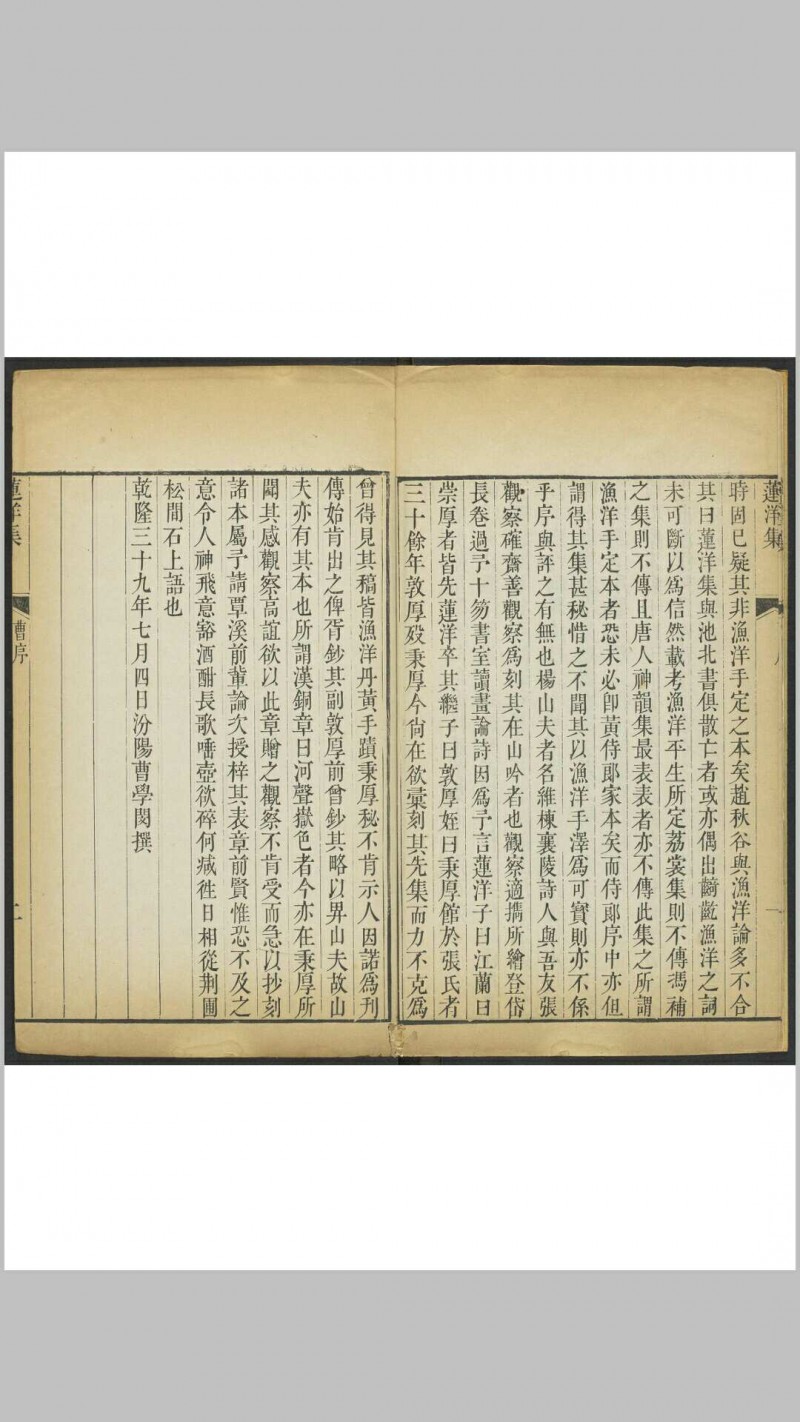 蓮洋集
時固已疑其非漁洋手定之本矣趙秋谷與漁洋論多不合
其曰蓮洋集與池北書俱散亡者或亦偶出齮齕漁洋之詞
未可斷以爲信然載考漁洋平生所定荔裳集則不傳馮補
之集則不傳且唐人神韻集最表表者亦不傳此集之所謂
漁洋手定本者恐未必卽黃侍郎家本矣而侍郎序中亦但
謂得其集甚秘惜之不聞其以漁洋手澤爲可寳則亦不係
乎序與評之有無也楊山夫者名維棟襄陵詩人與吾友張
觀察確齋善觀察爲刻其在山吟者也觀察適攜所繪登岱
長卷過予十笏書室讀畫論詩因爲予言蓮洋子曰江蘭曰
崇厚者皆先蓮洋卒其繼子曰敦厚姪曰秉厚館於張氏者
三十餘年敦厚殁秉厚今尙在欲彙刻其先集而力不克爲
曾得見其稿皆漁洋丹黃手蹟秉厚秘不肯示人因諾爲刋
傳始肯出之俾胥鈔其副敦厚前曾鈔其略以畀山夫故山
夫亦有其本也所謂漢銅章曰河聲嶽色者今亦在秉厚所
聞其感觀察高誼欲以此章贈之觀察不肯受而急以抄刻
諸本屬予請覃溪前輩論次授梓其表章前賢惟恐不及之
意令人神飛意豁酒酣長歌唾壺欲碎何減徃日相從荆圃
松間石上語也
乾隆三十九年七月四日汾陽曹學閔撰
蓮洋集
曹序
二